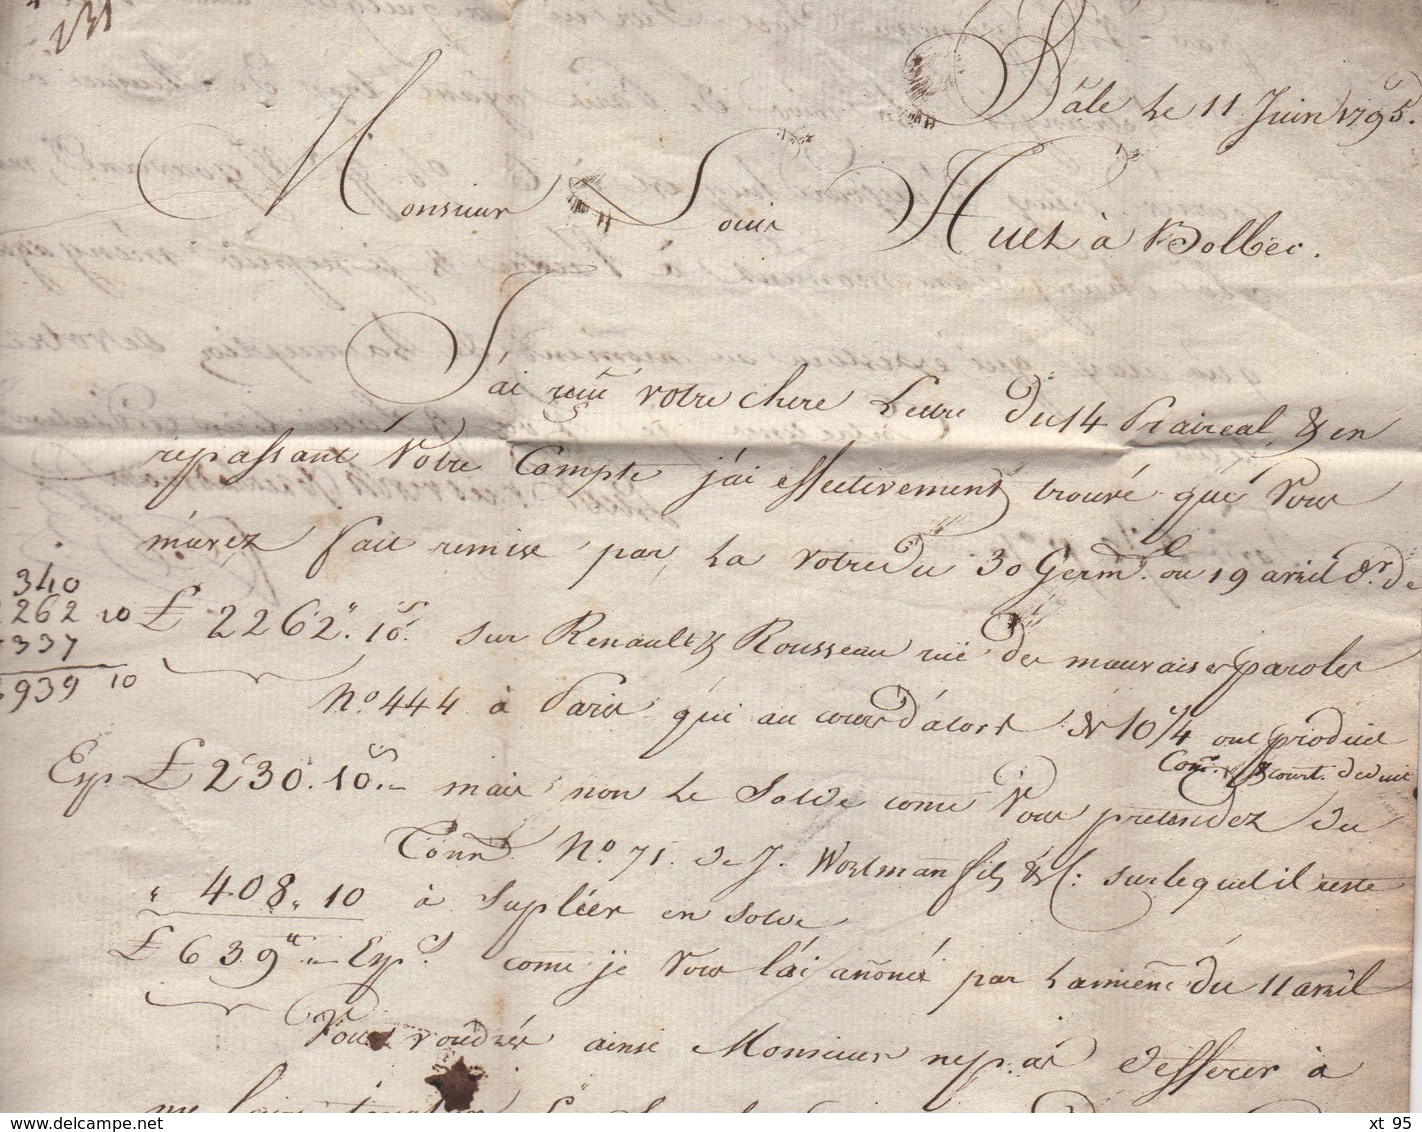 Bâle Le 11 Juin 1795.
Monsieur Louis Huet à Bolbec.
J'ai recüe votre chere Lettre du 14 Praireal & en
repassant Votre Compte j'ai effectivement trouvé que Vous
m'avez fait remise par La votre du 30 Germl. ou 19 avril dr. de
£ 2262". 10s. sur Renault & Rousseau rüe des mauvaises paroles
340
262 10
337
939 10
No. 444 à Paris qui au cours d'alors de 10 1/4 ont produit
Com. & Court. deduit
Esp £ 230. 10s.- mais non Le Solde come Vous pretendez du
Tonn No. 71. de J. Wortmann fils & C: sur lequel il reste
" 408 " 10 à supléer en solde
£ 639" - Esp. come je vous l'ai anoncé par La mienne du 11 avril
Vous voudrés ainsi Monsieur ne pas differer à
me faire
www.delcampe.net
xt 95